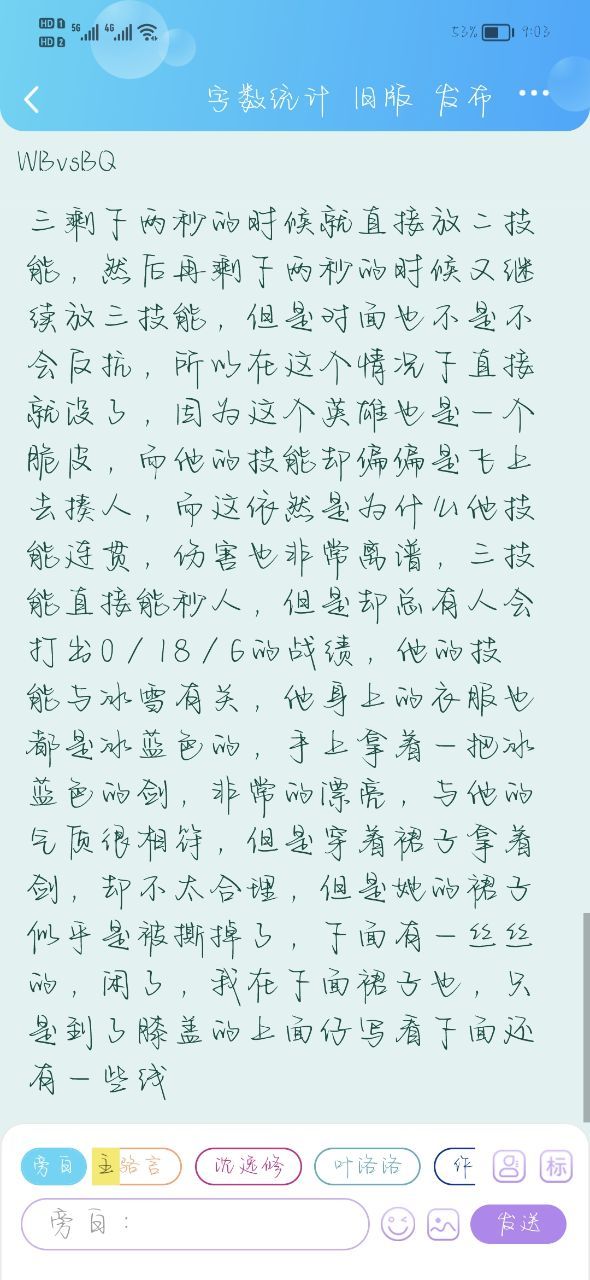 HD 1 5G 4G 53% 9:03
HD 2
字数统计 旧版 发布
WBvsBQ
三剩下两秒的时候就直接放二技
能，然后再剩下两秒的时候又继
续放三技能，但是对面也不是不
会反抗，所以在这个情况下直接
就没了，因为这个英雄也是一个
脆皮，而他的技能却偏偏是飞上
去揍人，而这依然是为什么他技
能连贯，伤害也非常离谱，三技
能直接能秒人，但是却总有人会
打出0/18/6的战绩，他的技
能与冰雪有关，他身上的衣服也
都是冰蓝色的，手上拿着一把冰
蓝色的剑，非常的漂亮，与他的
气质很相符，但是穿着裙子拿着
剑，却不太合理，但是她的裙子
似乎是被撕掉了，下面有一丝丝
的，困了，我在下面裙子也，只
是到了膝盖的上面仔写看下面还
有一些线
旁白 主 骆言 沈逸修 叶洛洛 作 标
旁白： 发送